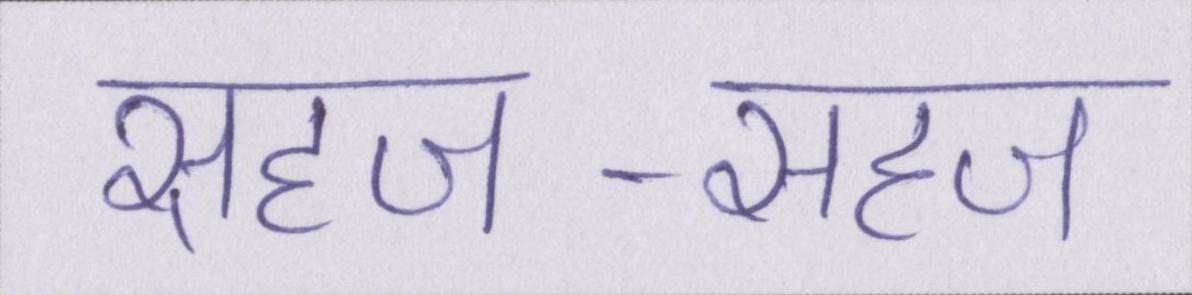 सहज -सहज